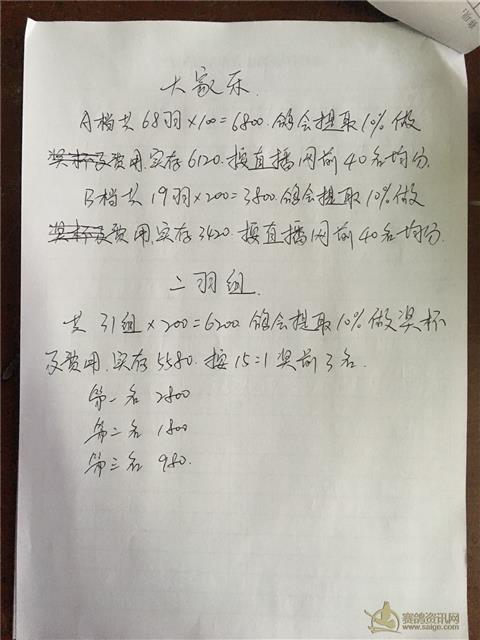 大家乐.
A档共68羽×100=6800.鸽会提取10%做
奖杯及费用.实存6120.按直播网前40名均分.
B档共19羽×200=3800.鸽会提取10%做
奖杯及费用.实存3420.按直播网前40名均分.
二羽组.
共31组×200=6200 鸽会提取10%做奖杯
及费用.实存5580.按15=1奖前3名.
第一名 2800
第二名 1800
第三名 980.
赛鸽资讯网
www.saige.com